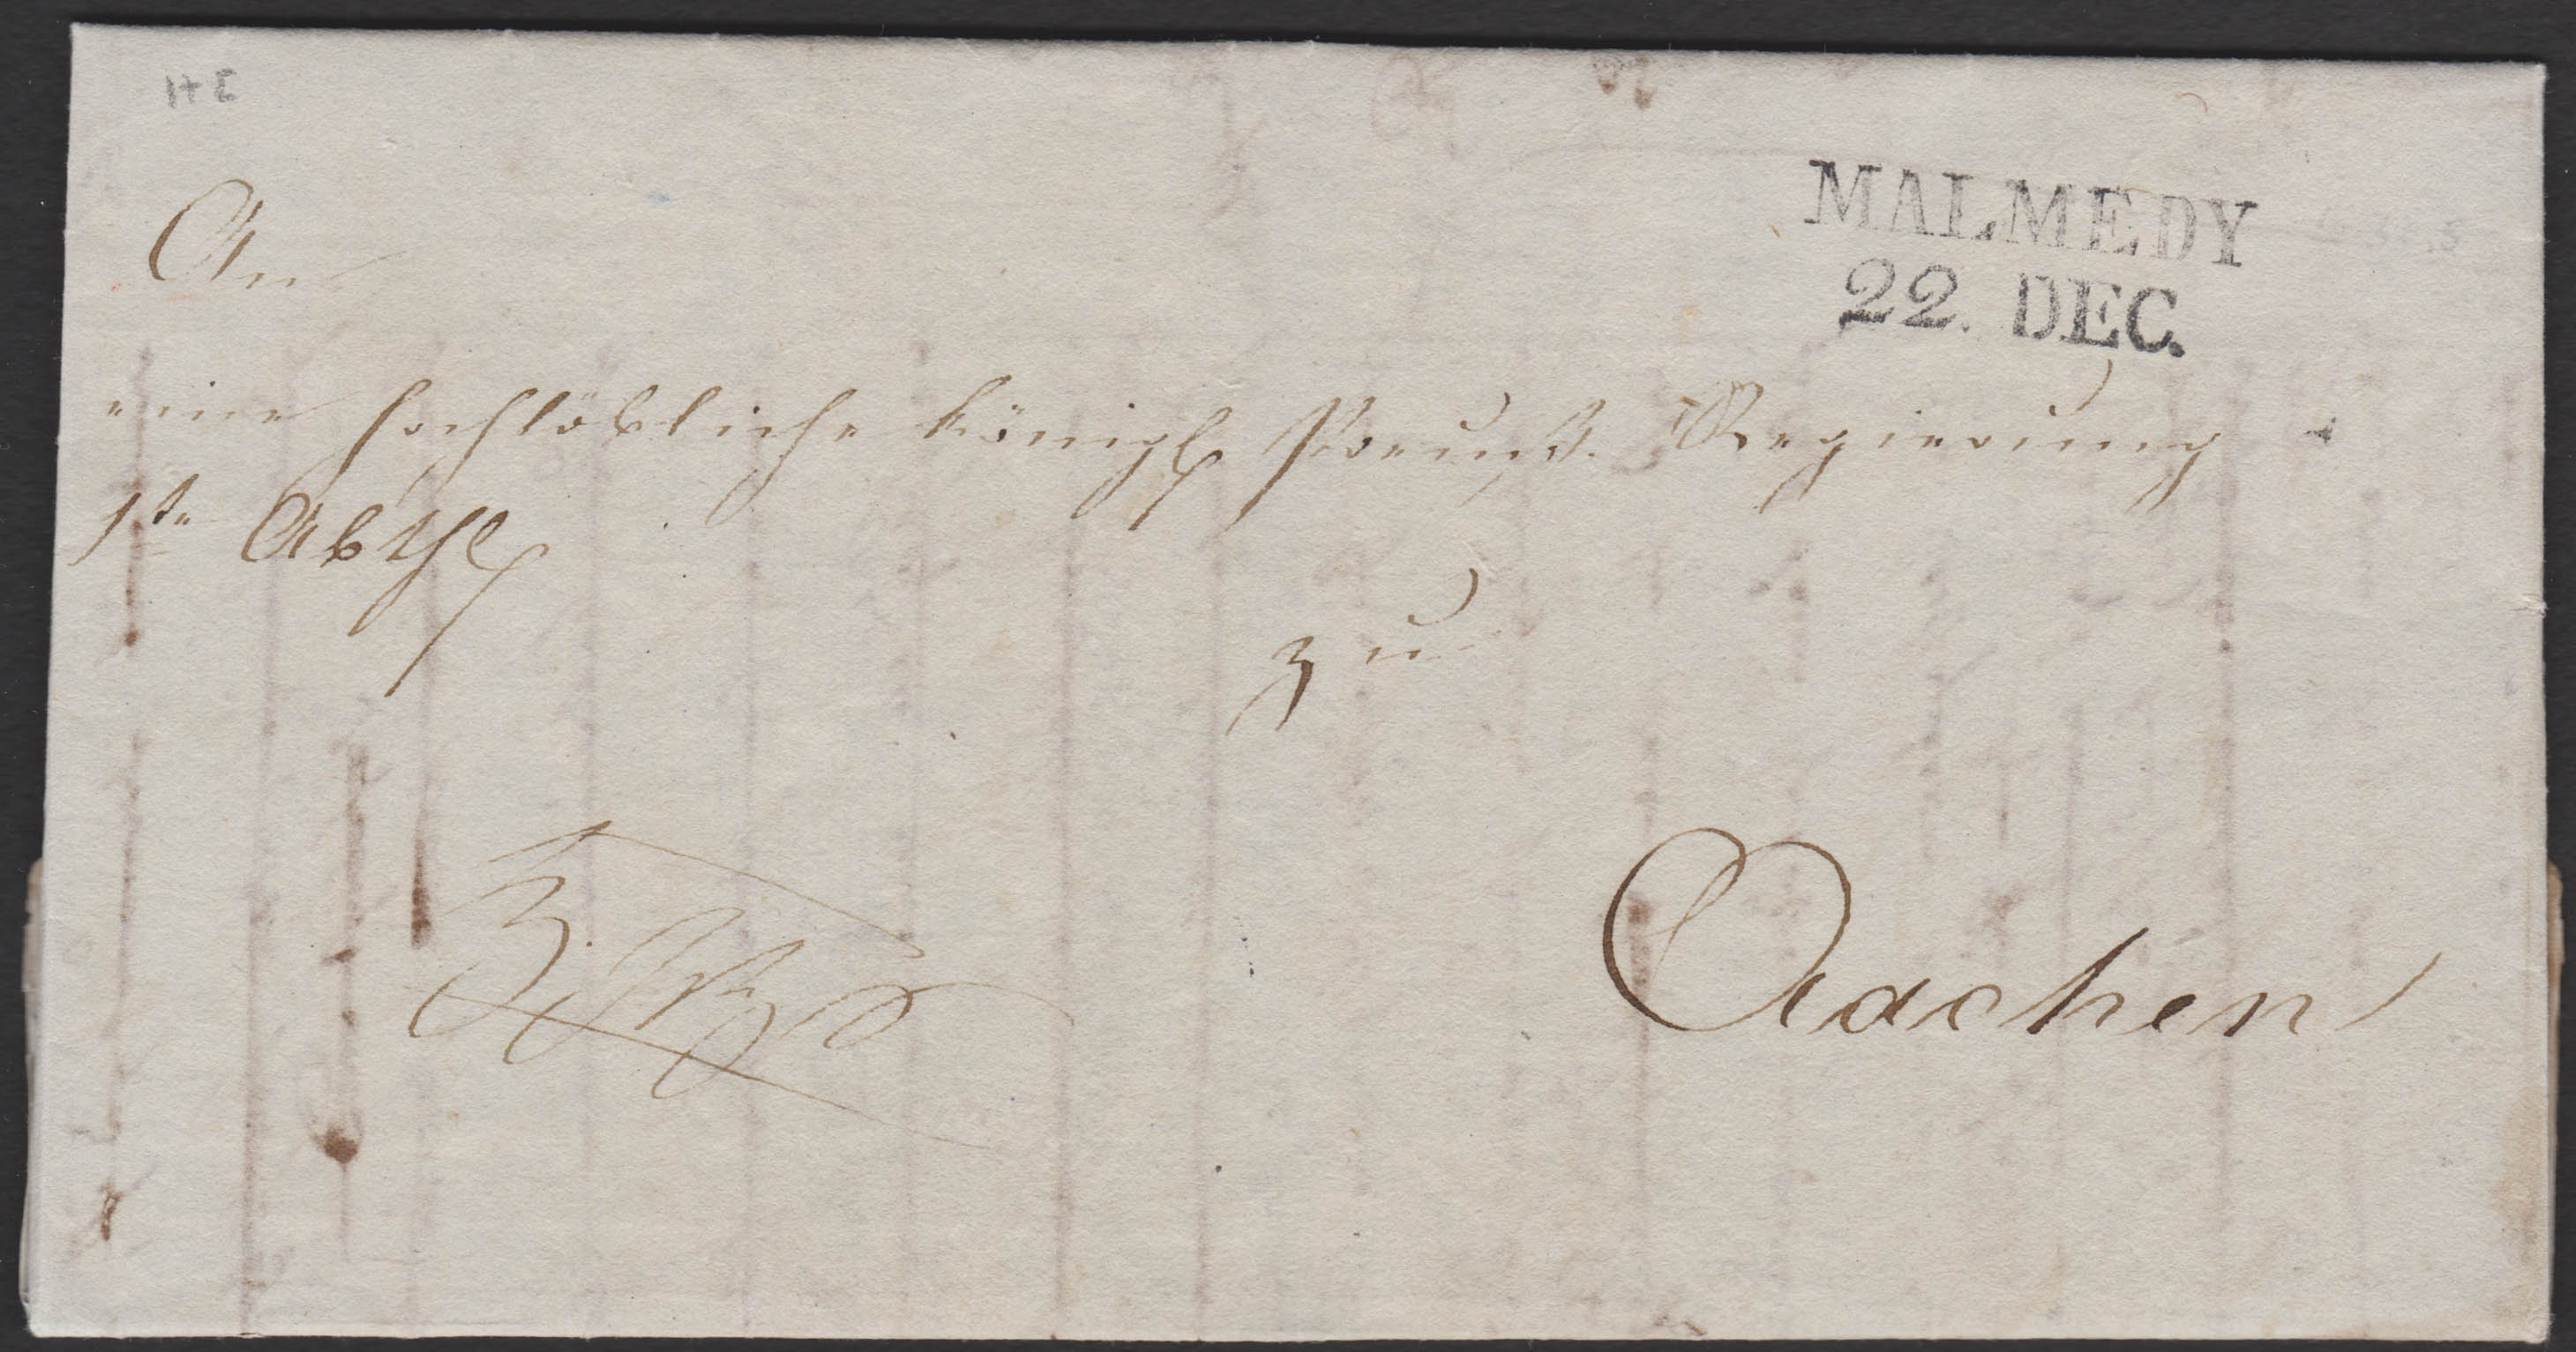 MALMEDY
22. DEC.
An
eine hochlöbliche königl Preuß. Regierung
1te Abthl
zu
Aachen